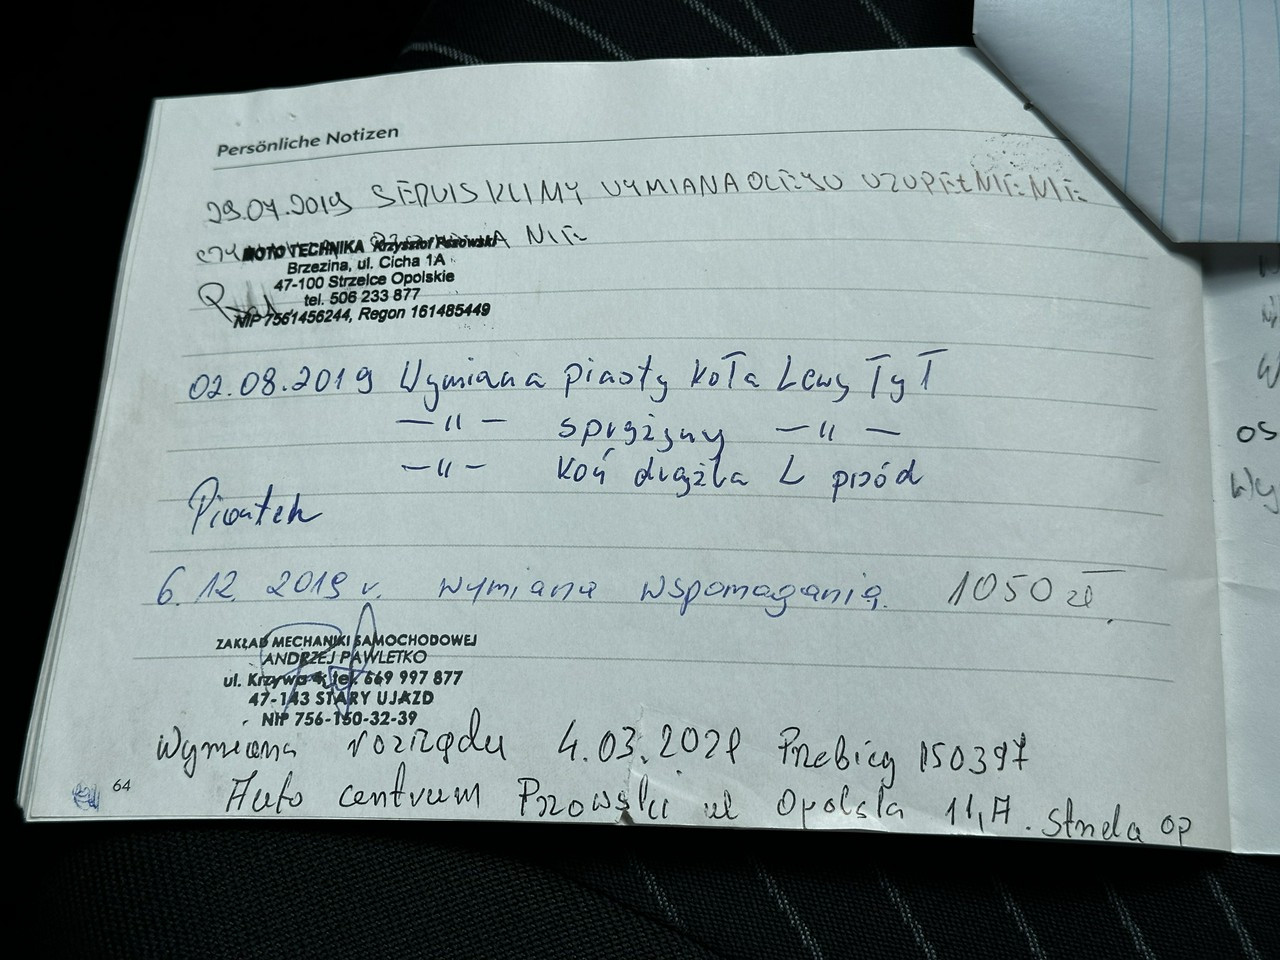 Persönliche Notizen
29.07.2019 SERVIS KLIMY WYMIANA OLEJU UZUPEŁNIENIE
MOTO TECHNIKA Krzysztof
Brzezina, ul. Cicha 1A
47-100 Strzelce Opolskie
tel. 506 233 877
NIP 7561456244, Regon 161485449
02.08.2019 Wymiana piasty koła Lewy Tył
—〃— sprężyny —〃—
—〃— koń drążka L przód
Piontek
6.12. 2019 r. wymiana wspomagania. 1050 zł
ZAKŁAD MECHANIKI SAMOCHODOWEJ
ANDRZEJ PAWLETKO
ul. Krzywa 4, tel. 669 997 877
47-143 STARY UJAZD
NIP 756-150-32-39
Wymiana rozrządu 4.03.2021 Przebieg 150397
64
Auto centrum Pzowski ul Opolska 11,A. Strzelce op
os
Wy